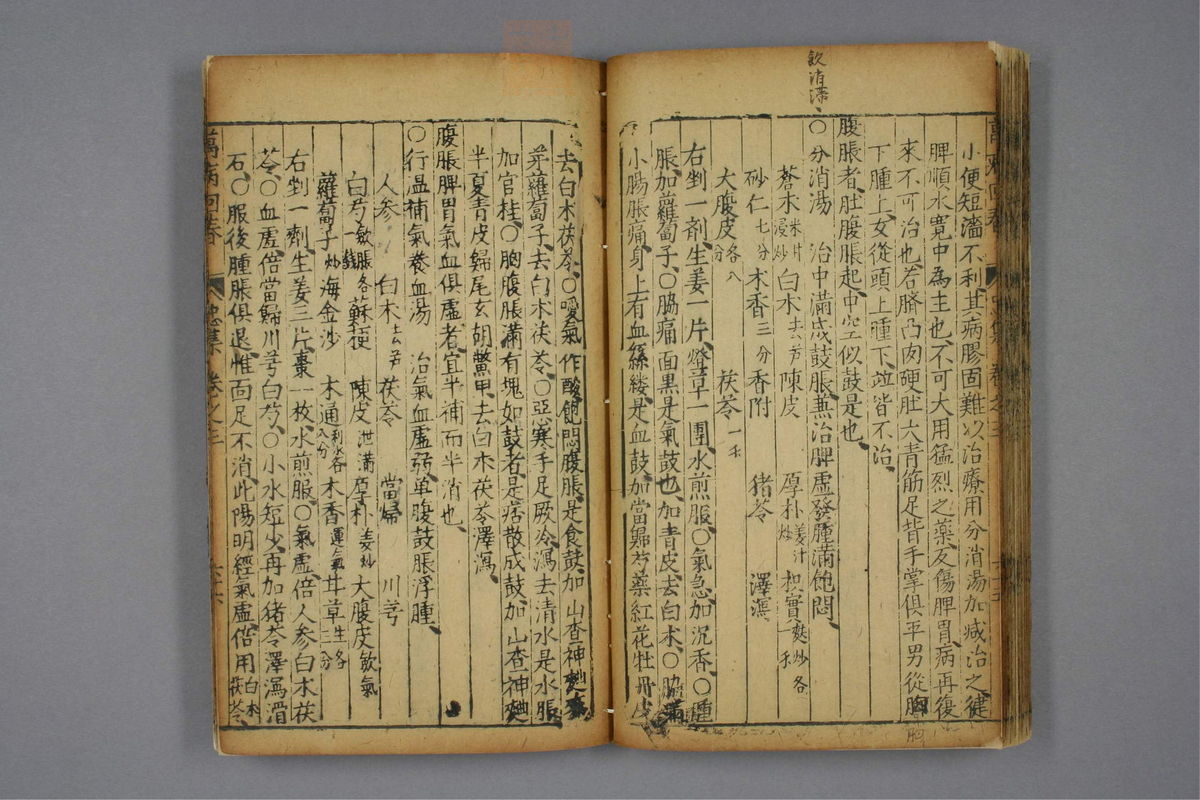 飲消滿
小便短澁不利其病膠固難以治療用分消湯加减治之健
脾順水寬中為主也不可大用猛烈之藥反傷脾胃病再復
來不可治也若臍凸肉硬肚大青筋足背手掌俱平男從脚
下腫上女從頭上腫下並皆不治
腹脹者肚腹脹起中空似鼓是也
〇分消湯 治中滿成鼓脹兼治脾虛發腫滿飽悶
蒼朮米泔浸炒 白朮去芦 陳皮 厚朴姜汁炒 枳實麸炒各一禾
砂仁七分 木香三分 香附 猪苓 澤瀉
大腹皮各八分 茯苓一禾
右剉一剤生姜一片燈草一團水煎服〇氣急加沉香〇腫
脹加蘿蔔子〇脇痛面黒是氣鼓也加青皮去白朮〇脇滿
小腸脹痛身上有血絲縷是血鼓加當歸芍藥紅花牡丹皮
去白朮茯苓〇噯氣作酸飽悶腹脹是食鼓加山査神麯麥
芽蘿蔔子去白朮茯苓〇惡寒手足厥冷瀉去清水是水脹
加官桂〇胸腹脹滿有塊如鼓者是痞散成鼓加山査神麯
半夏青皮歸尾玄胡鱉甲去白朮茯苓澤瀉
腹脹脾胃氣血俱虛者宜半補而半消也
〇行温補氣養血湯 治氣血虛弱单腹鼓脹浮腫
人参 白朮去芦 茯苓 當歸 川芎
白芍歛脹各一錢 蘇梗 陳皮泄滿 厚朴姜炒 大腹皮歛氣
蘿蔔子炒 海金沙 木通利水各八分 木香運氣 甘草生各二分
右剉一劑生姜三片棗一枚水煎服〇氣虛倍人参白朮茯
苓〇血虛倍當歸川芎白芍〇小水短少再加猪苓澤瀉滑
石〇服後腫脹俱退惟面足不消此陽明經氣虛倍用白朮茯苓
萬病回春 忠集 卷之三